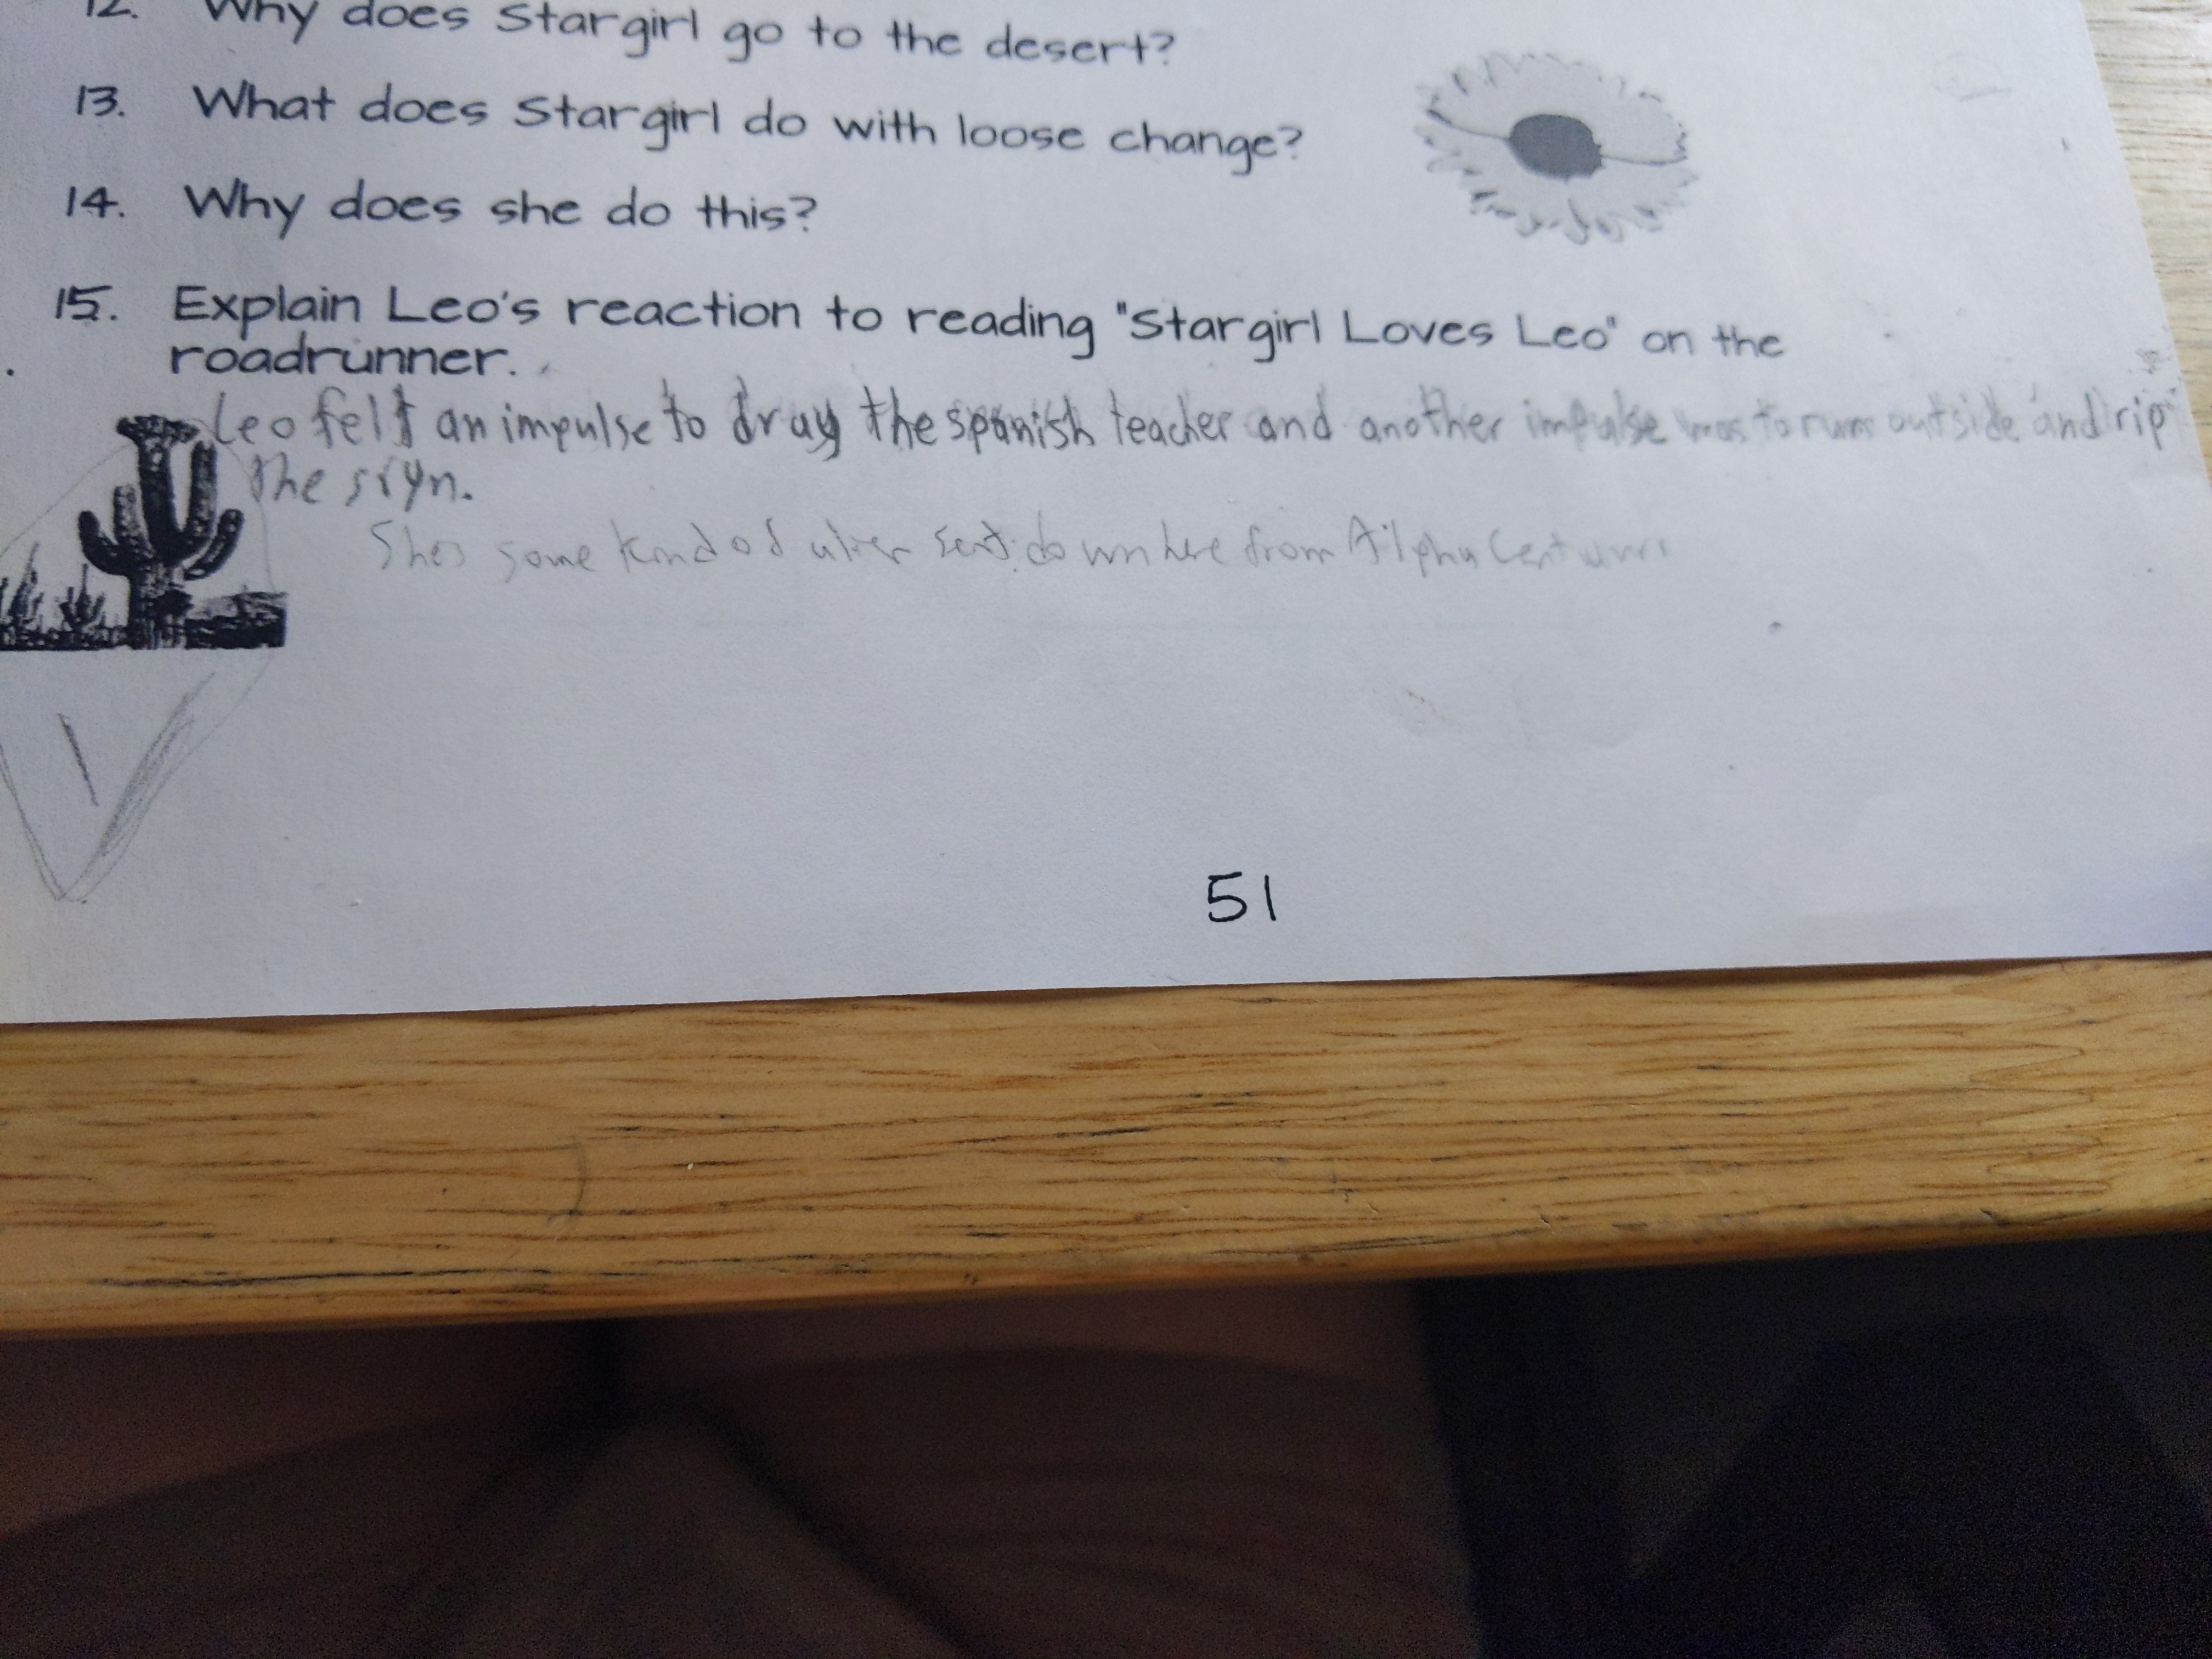 12. Why does Stargirl go to the desert?
13. What does Stargirl do with loose change?
14. Why does she do this?
15. Explain Leo's reaction to reading "Stargirl Loves Leo" on the
roadrunner.
Leo felt an impulse to drag the spanish teacher and another impulse was to run outside and rip
the sign.
Shes some kind of alien sent down here from Alpha
51